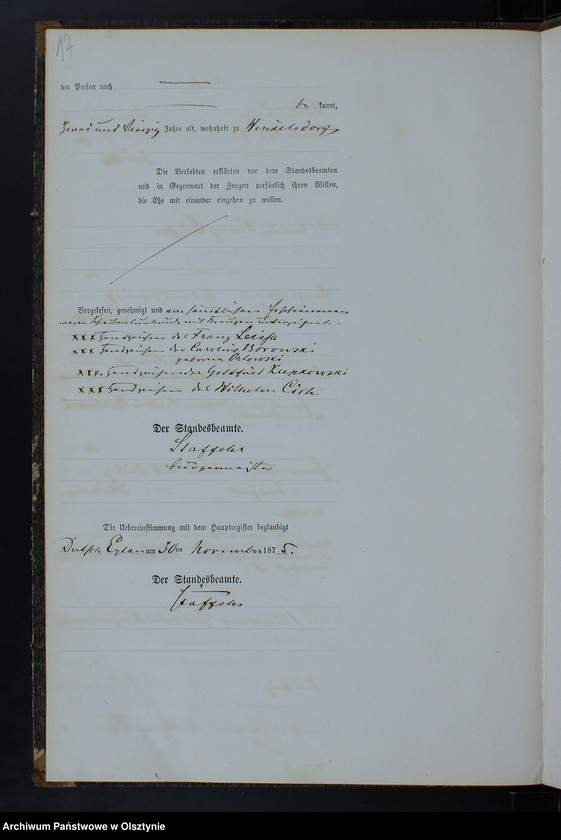 17
der Person nach
be kannt,
Zwei und Vierzig Jahre alt, wohnhaft zu Winkelsdorf
Die Verlobten erklärten vor dem Standesbeamten
und in Gegenwart der Zeugen persönlich ihren Willen,
die Ehe mit einander eingehen zu wollen.
Vorgelesen, genehmigt und von sämtlichen Erschienenen
wegen Schreibensunkunde mit Kreuzen unterzeichnet.
XXX Handzeichen des Franz
XXX Handzeichen der Caroline Borowski
geborne Orlowski
XXX Handzeichen des Gottfried Kupkowski
XXX Handzeichen des Wilhelm
Der Standesbeamte.
Staffehr
Bürgermeister
Die Uebereinstimmung mit dem Hauptregister beglaubigt
Deutsch Eylau am 30ten November 1875.
Der Standesbeamte.
Staffehr
Archiwum Państwowe w Olsztynie